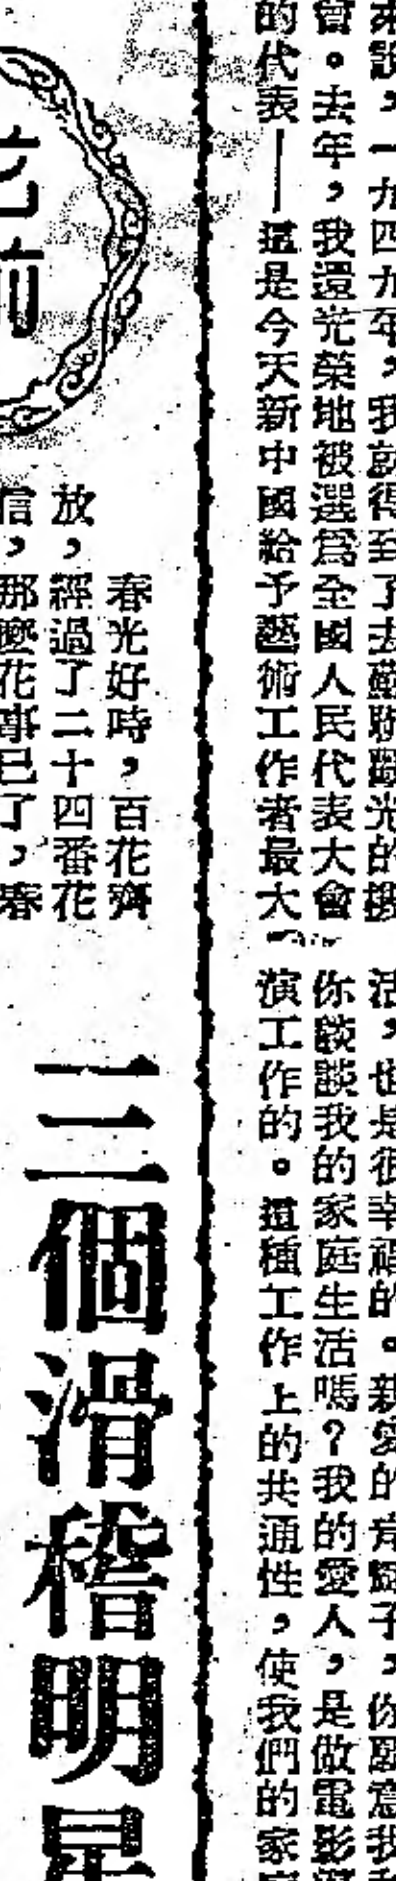 來說，一九四九年，我就得到了去蘇聯觀光的機
會。去年，我還光榮地被選爲全國人民代表大會
的代表——這是今天新中國給予藝術工作者最大
活，也是很幸福的。親愛的
子，你願意我
你談談我的家庭生活嗎？我的愛人，是做電影
演工作的。這種工作上的共通性，使我們的家
花前
春光好時，百花齊
放，經過了二十四番花
信，那麼花事已了，春
三個滑稽明星